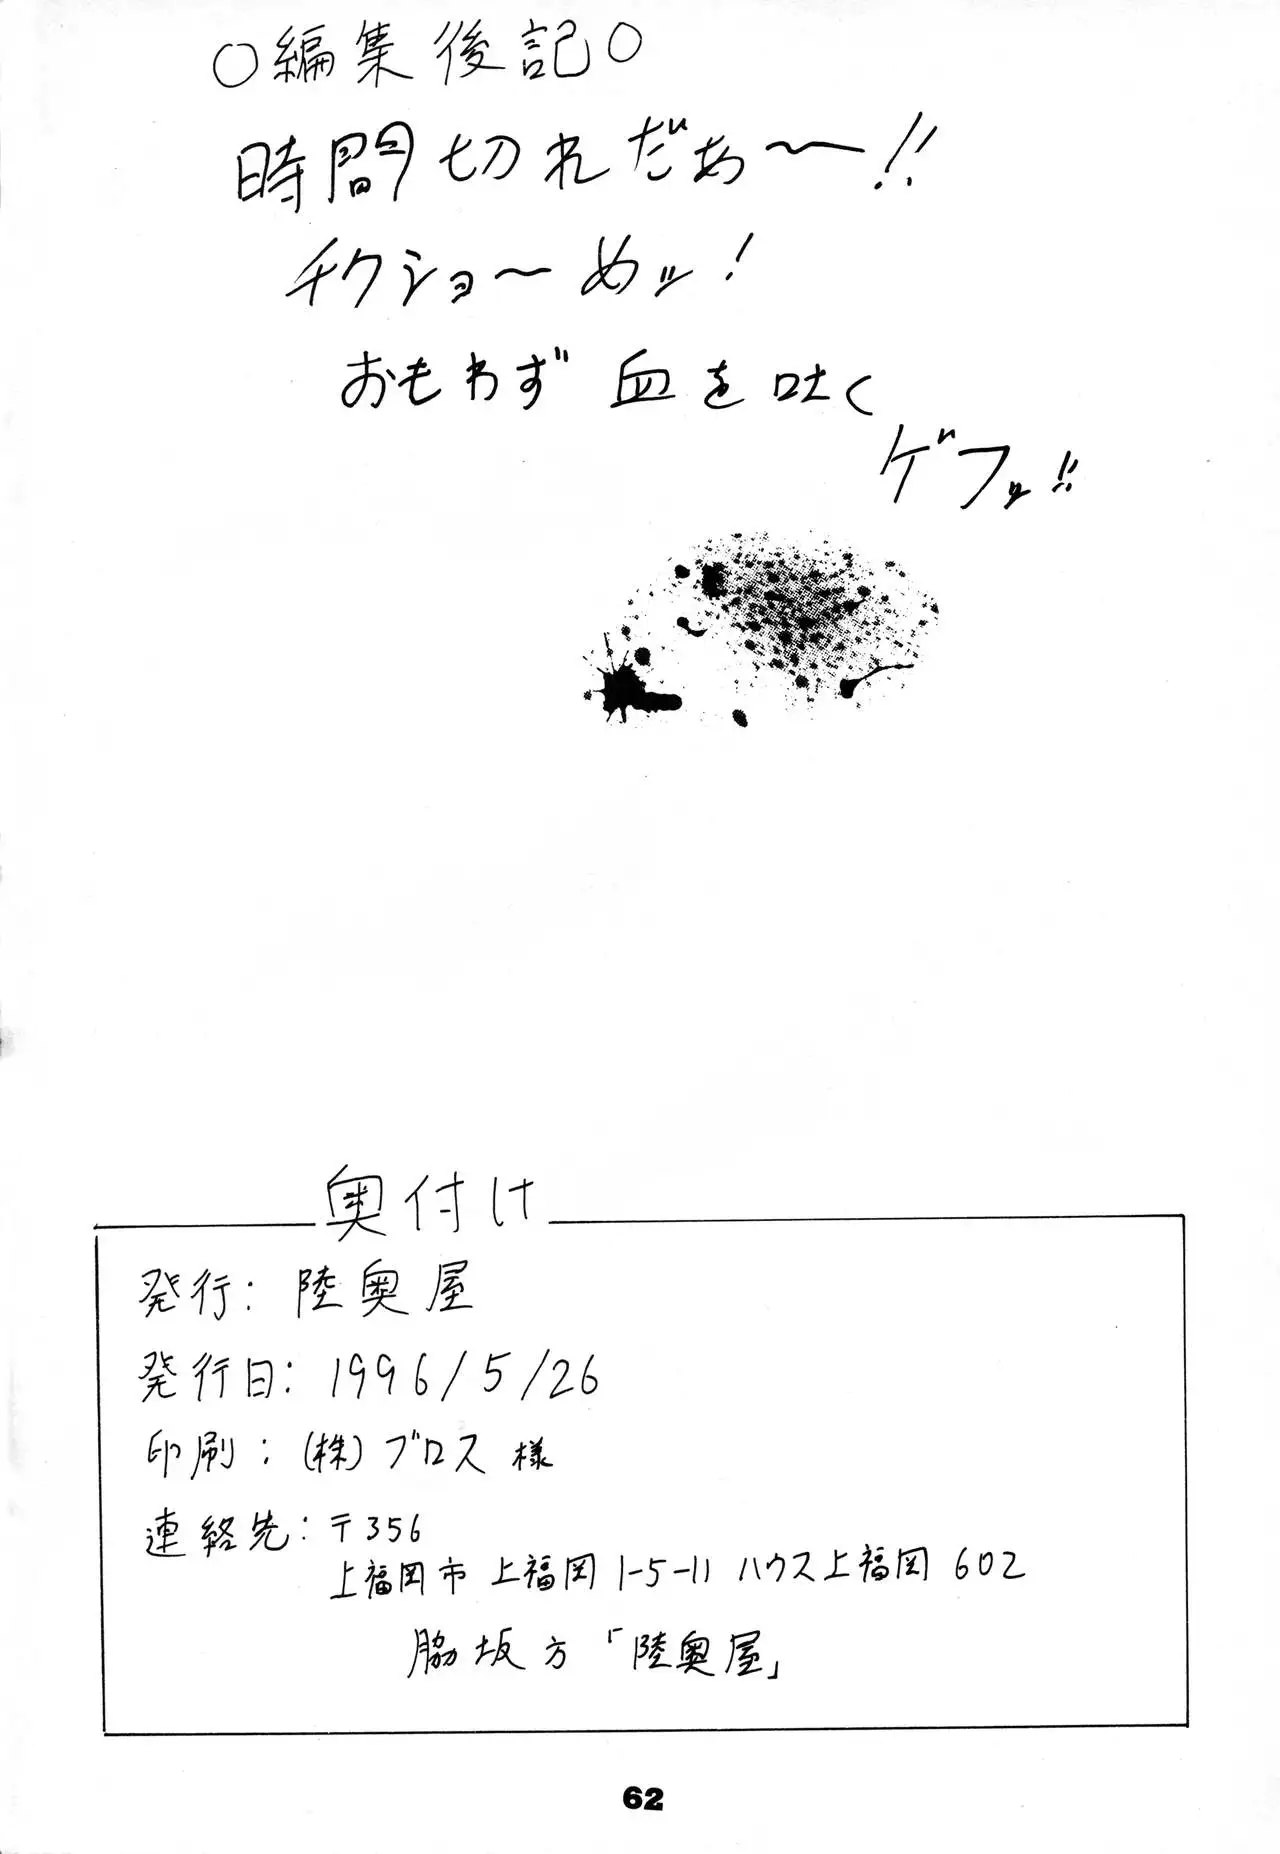 ○編集後記○
時間切れだぁ〜!!
チクショ〜めッ!
おもわず血を吐く
ゲフッ!!
奥付け
発行: 陸奥屋
発行日: 1996/5/26
印刷: (株)ブロス 様
連絡先: 〒356
上福岡市 上福岡 1-5-11 ハウス上福岡 602
脇坂方「陸奥屋」
62